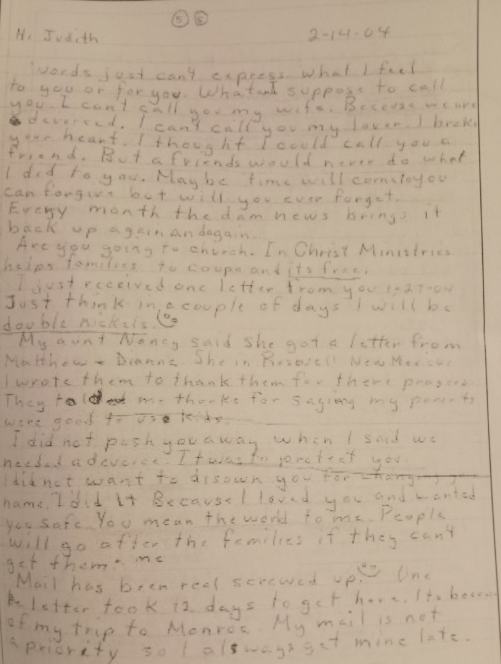 5 5
Hi Judith 2-14-04
Words just can't express what I feel
to you or for you. What suppose to call
you. I can't call you my wife. Because we are
devorced. I can't call you my lover. I broke
your heart. I thought I could call you a
friend. But a friends would never do what
I did to you. Maybe time will come to you
can forgive but will you ever forget.
Every month the dam news brings it
back up again and again
Are you going to church. In Christ Ministries
helps families to coupe and its free.
I just received one letter from you 1-27-04
Just think in a couple of days I will be
double Nickels.
My aunt Nancy said she got a letter from
Matthew + Dianne. She in New Mexico
I wrote them to thank them for there prayers
They told me thanks for saying my parents
were good to us kids.
I did not push you away when I said we
needed a deverce. It was to protect you.
I did not want to disown you for
name. I did it Because I loved you and wanted
you safe. You mean the world to me. People
will go after the families if they can't
get them. me
Mail has been real screwed up. One
letter took 12 days to get here. Its because
of my trip to Monroe. My mail is not
a priority so I always get mine late.